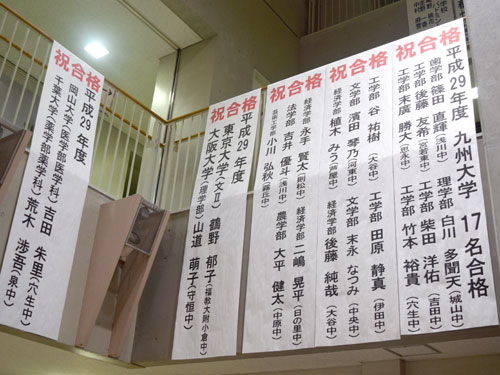 祝合格
平成29年度 九州大学 17名合格
歯学部 篠田 直輝(浅川中) 理学部 白川 多聞天(城山中)
工学部 後藤 友希(宮若東中) 工学部 柴田 洋佑(吉田中)
工学部 末廣 勝大(思永中) 工学部 竹本 裕貴(穴生中)
祝合格
工学部 谷 祐樹(大谷中) 工学部 田原 静真(伊田中)
文学部 濱田 琴乃(河東中) 文学部 末永 なつみ(中央中)
経済学部 植木 みう(芦屋中) 経済学部 後藤 純哉(大谷中)
祝合格
経済学部 永手 賢太(則松中) 経済学部 二嶋 晃平(日の里中)
法学部 吉井 優斗(浅川中) 農学部 大平 健太(中原中)
芸術工学部 小川 弘秋(霧丘中)
祝合格
平成29年度
東京大学(文Ⅱ) 鶴野 郁子(福教大附小倉中)
大阪大学(理学部) 山道 萌子(守恒中)
祝合格
平成29年度
岡山大学(医学部医学科)吉田 朱里(穴生中)
千葉大学(薬学部薬学科)荒木 渉吾(泉中)